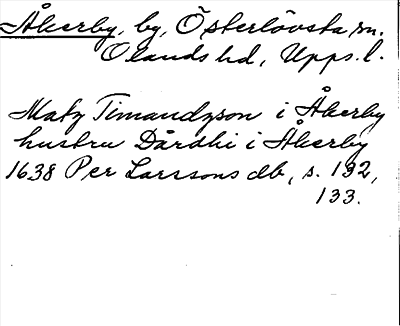 Åkerby, by, Österlövsta sn.
Olands hd, Upps. l.
Matz Timandzson i Åkerby
hustru Dårdhi i Åkerby
1638 Per Larssons db, s. 132,
133.